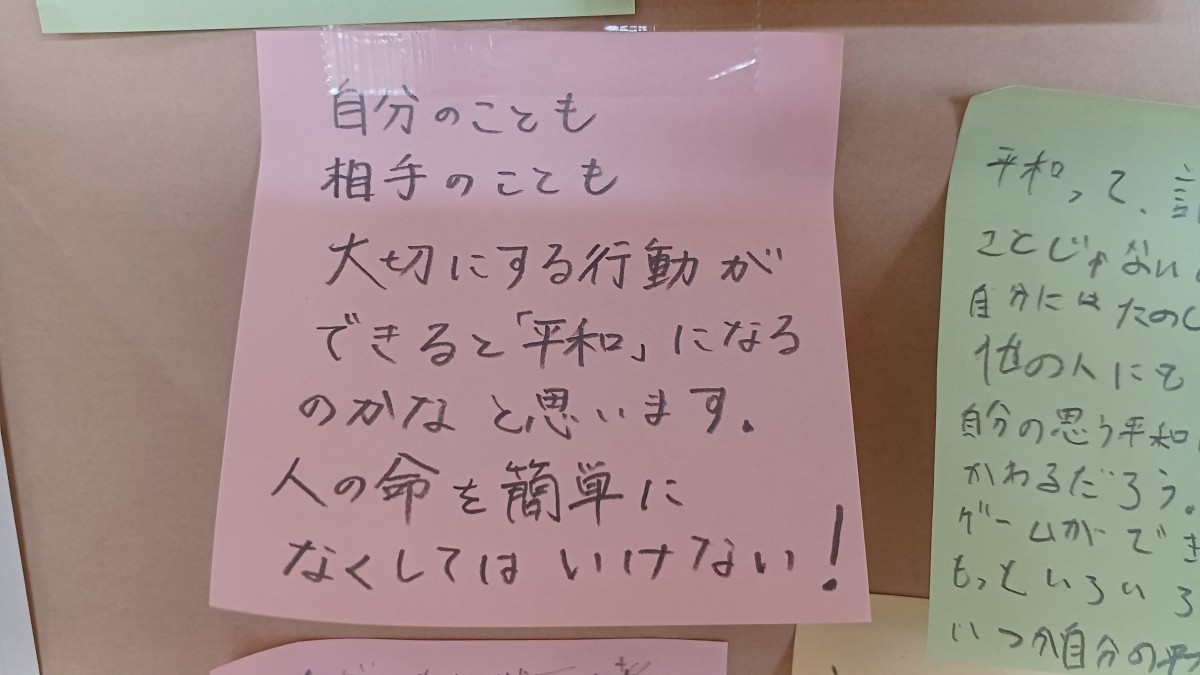 自分のことも
相手のことも
大切にする行動が
できると「平和」になる
のかなと思います.
人の命を簡単に
なくしてはいけない!
平和って、
ことじゃない
自分にはたのし
他の人にも
自分の思う平和
かわるだろう。
ゲームができ
もっといろいろ
いつか自分の平